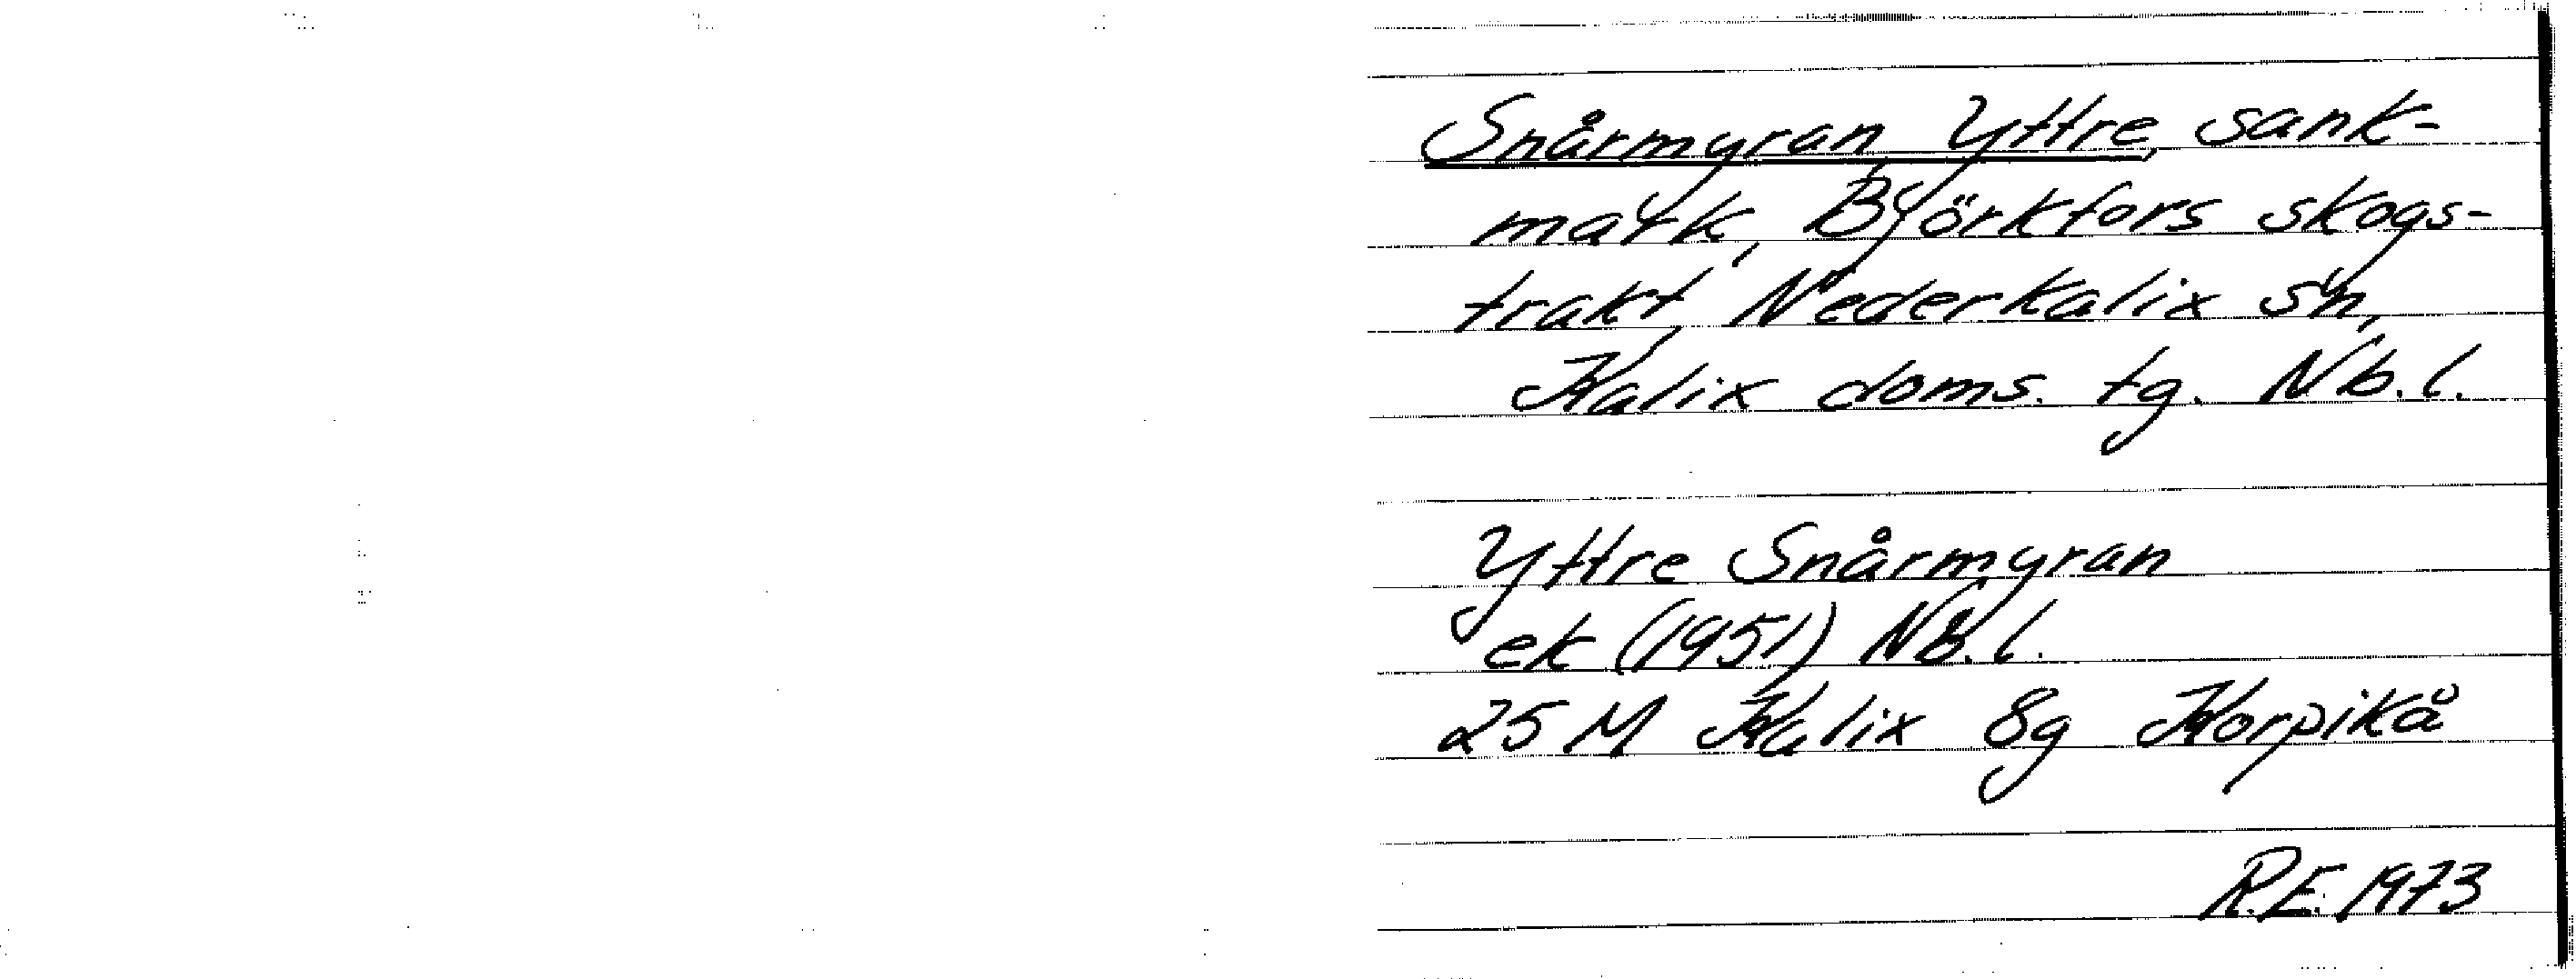 Snårmyran Yttre, sank-
mark, Björkfors skogs-
trakt, Nederkalix sn,
Kalix doms. tg. Nb.l.
Yttre Snårmyran
ek (1951) Nb.l.
25 M Kalix 8g Korpikå
R.E. 1973